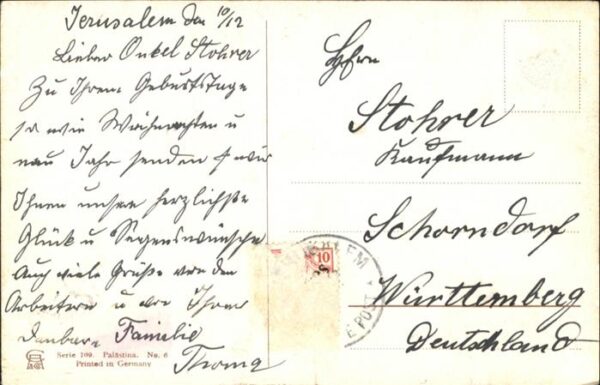 Jerusalem den 10/12
Lieber Onkel Stohrer
Zu Ihrem Geburtstage
so wie Weihnachten u
neu Jahr senden wir
Ihnen unsere herzlichste
Glück u Segenswünsche
Auch viele Grüße von den
Arbeitern u von Ihrer
dankbar. Familie
Thoma
Serie 109. Palästina. No. 6
Printed in Germany
Herrn
Stohrer
Kaufmann
Schorndorf
Württemberg
Deutschland
10